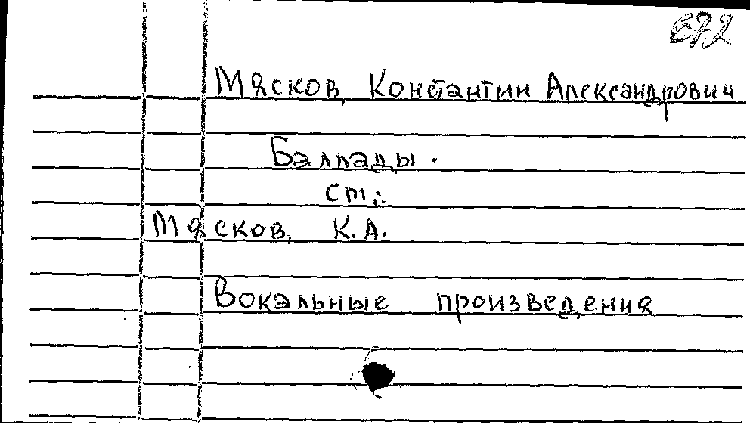 692
Мясков, Константин Александрович
Баллады.
см:
Мясков, К.А.
Вокальные произведения